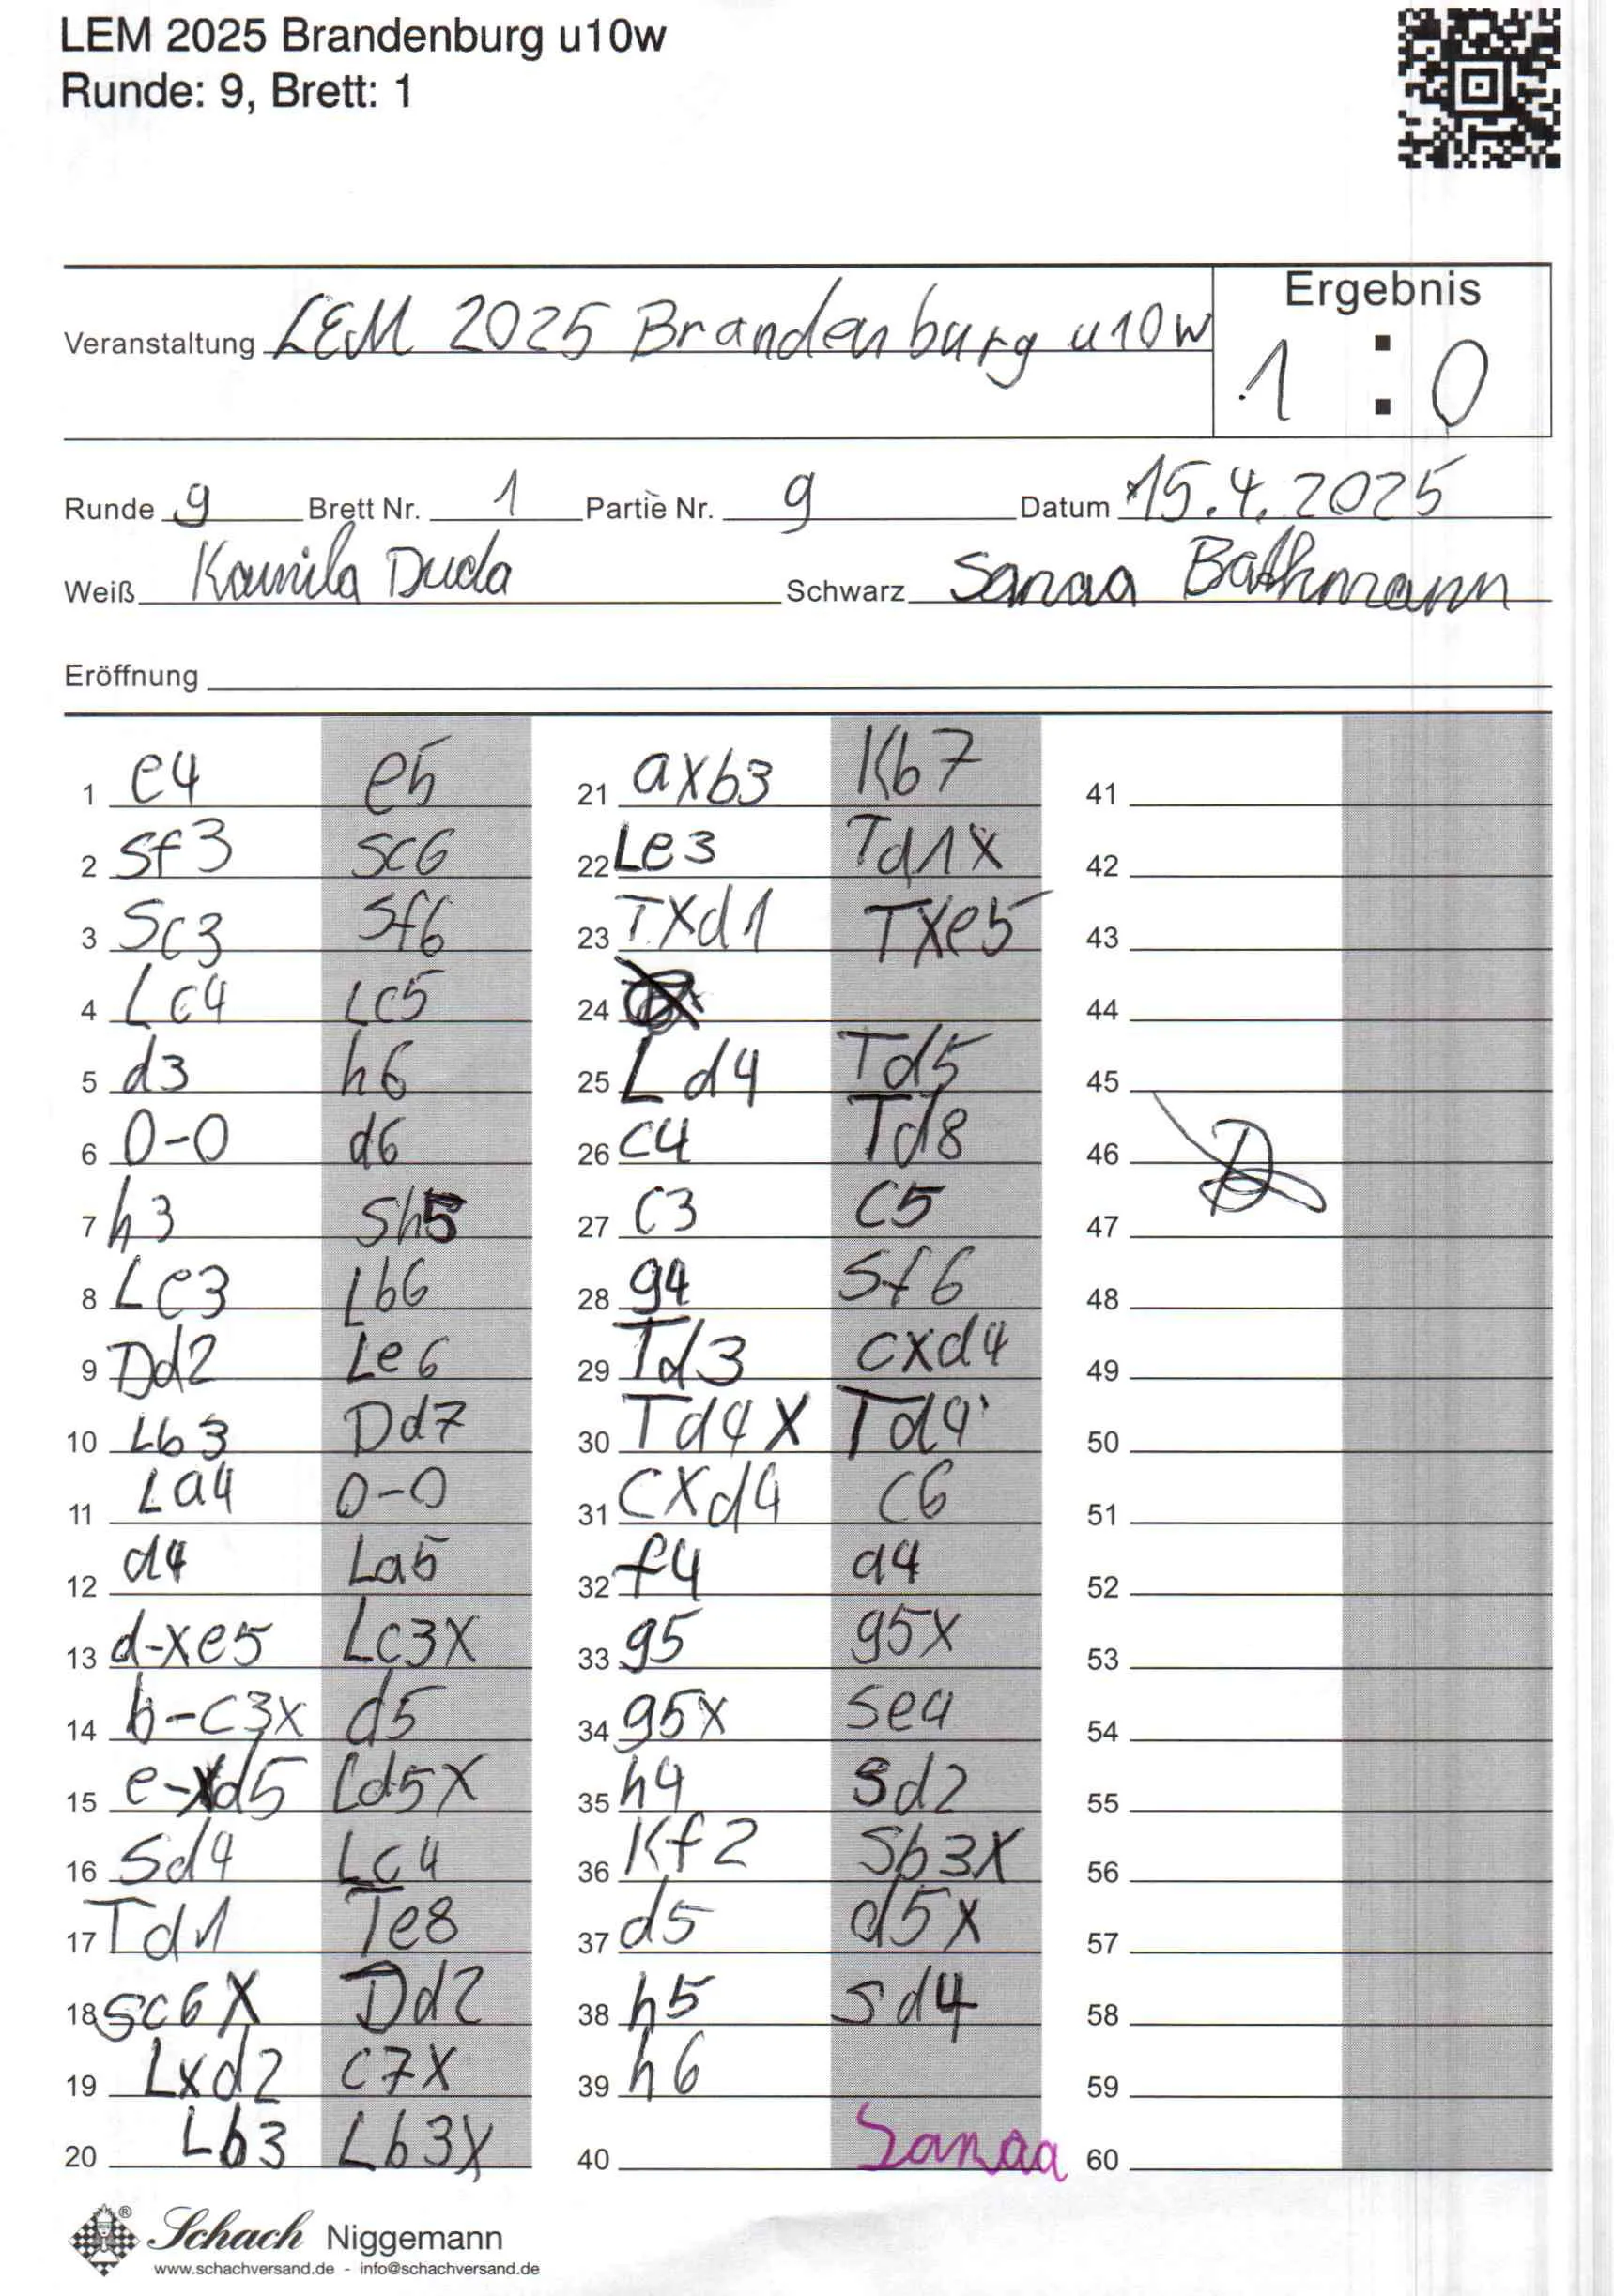 LEM 2025 Brandenburg u10w
Runde: 9, Brett: 1
Ergebnis
Veranstaltung LEM 2025 Brandenburg u10w
1 : 0
Runde 9 Brett Nr. 1 Partie Nr. 9 Datum 15.4.2025
Weiß Kamila Duda Schwarz Sanaa Bathmann
Eröffnung
1 e4 e5
2 Sf3 Sc6
3 Sc3 Sf6
4 Lc4 Lc5
5 d3 h6
6 0-0 d6
7 h3 Sh5
8 Le3 Lb6
9 Dd2 Le6
10 Lb3 Dd7
11 La4 0-0
12 d4 La5
13 d-xe5 Lc3X
14 b-c3x d5
15 e-xd5 Ld5X
16 Sd4 Lc4
17 Td1 Te8
18 Sc6X Dd2
19 Lxd2 c7X
20 Lb3 Lb3X
21 axb3 Kb7
22 Le3 Td1X
23 TXd1 TXe5
24
25 Ld4 Td5
26 c4 Td8
27 c3 c5
28 g4 Sf6
29 Td3 cxd4
30 Td4X Td4
31 cXd4 c6
32 f4 a4
33 g5 g5X
34 g5x Se4
35 h4 Sd2
36 Kf2 Sb3X
37 d5 d5X
38 h5 Sd4
39 h6
40 Sanaa
41
42
43
44
45
46
47
48
49
50
51
52
53
54
55
56
57
58
59
60
Schach Niggemann
www.schachversand.de - info@schachversand.de